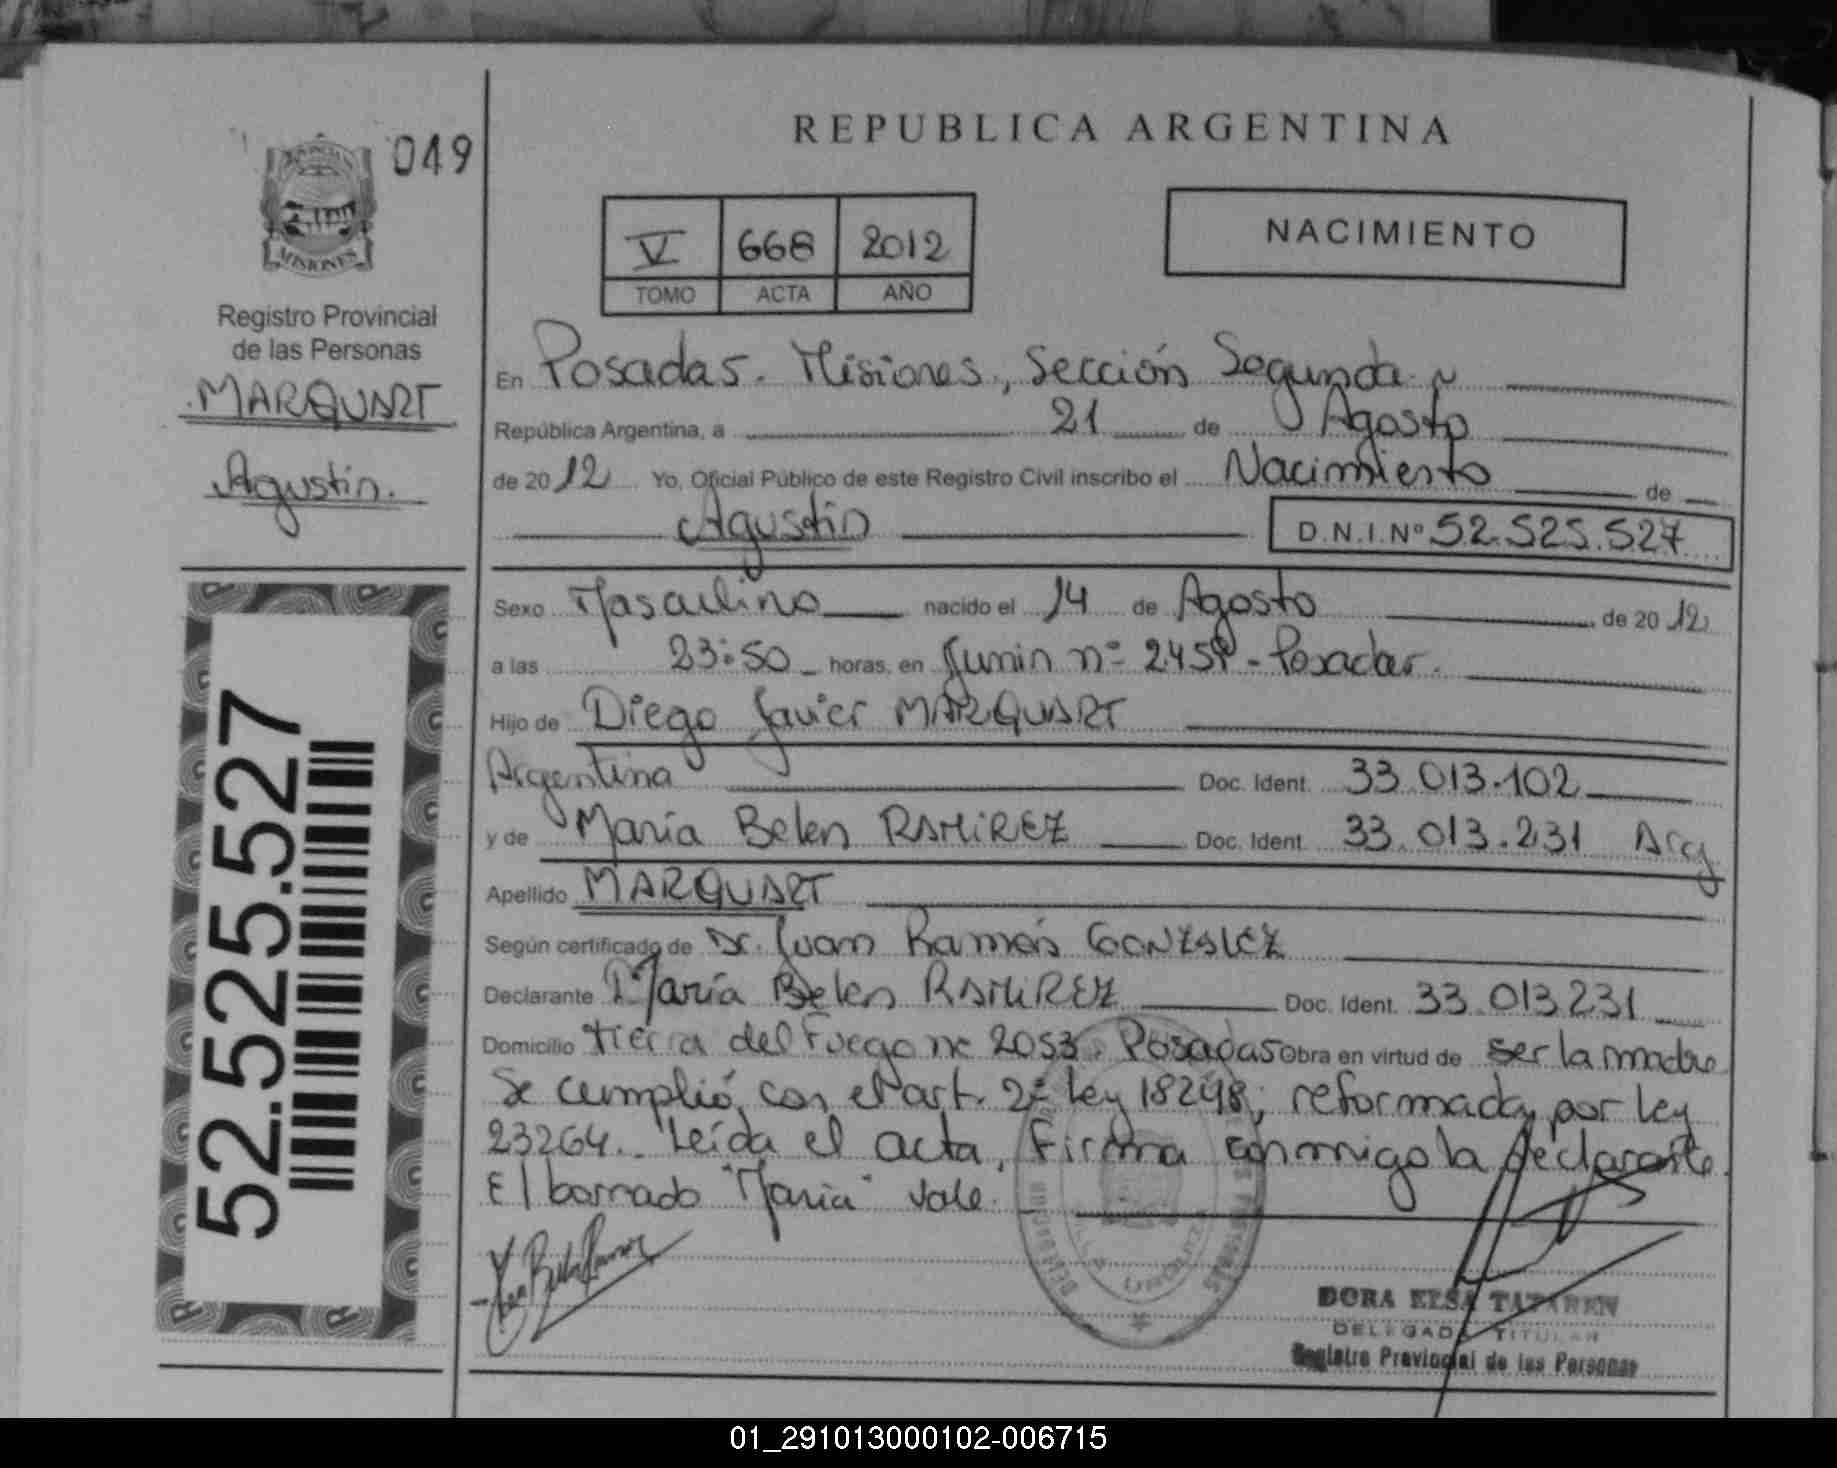 049
PROVINCIA DE
MISIONES
Registro Provincial
de las Personas
MARQUART
Agustín.
52.525.527
REPUBLICA ARGENTINA
V 668 2012
TOMO ACTA AÑO
NACIMIENTO
En Posadas. Misiones, Sección Segunda
República Argentina, a 21 de Agosto
de 2012 Yo, Oficial Público de este Registro Civil inscribo el Nacimiento de
Agustín D.N.I.Nº 52.525.527
Sexo Masculino nacido el 14 de Agosto de 2012
a las 23:50 horas, en Junin nº 2459 - Posadas.
Hijo de Diego Javier MARQUART
Argentina Doc. Ident. 33.013.102
y de María Belen RAMIREZ Doc. Ident. 33.013.231 Arg
Apellido MARQUART
Según certificado de Dr. Juan Ramón GONZALEZ
Declarante María Belen RAMIREZ Doc. Ident. 33.013231
Domicilio tierra del Fuego nº 2053. Posadas Obra en virtud de ser la madre
Se cumplió con el art. 2º Ley 18248, reformada por Ley
23264. Leída el acta, firma conmigo la declarante.
El borrado "María" vale.
DORA ELSA TATAREN
DELEGADA TITULAR
Registro Provincial de las Personas
01_291013000102-006715